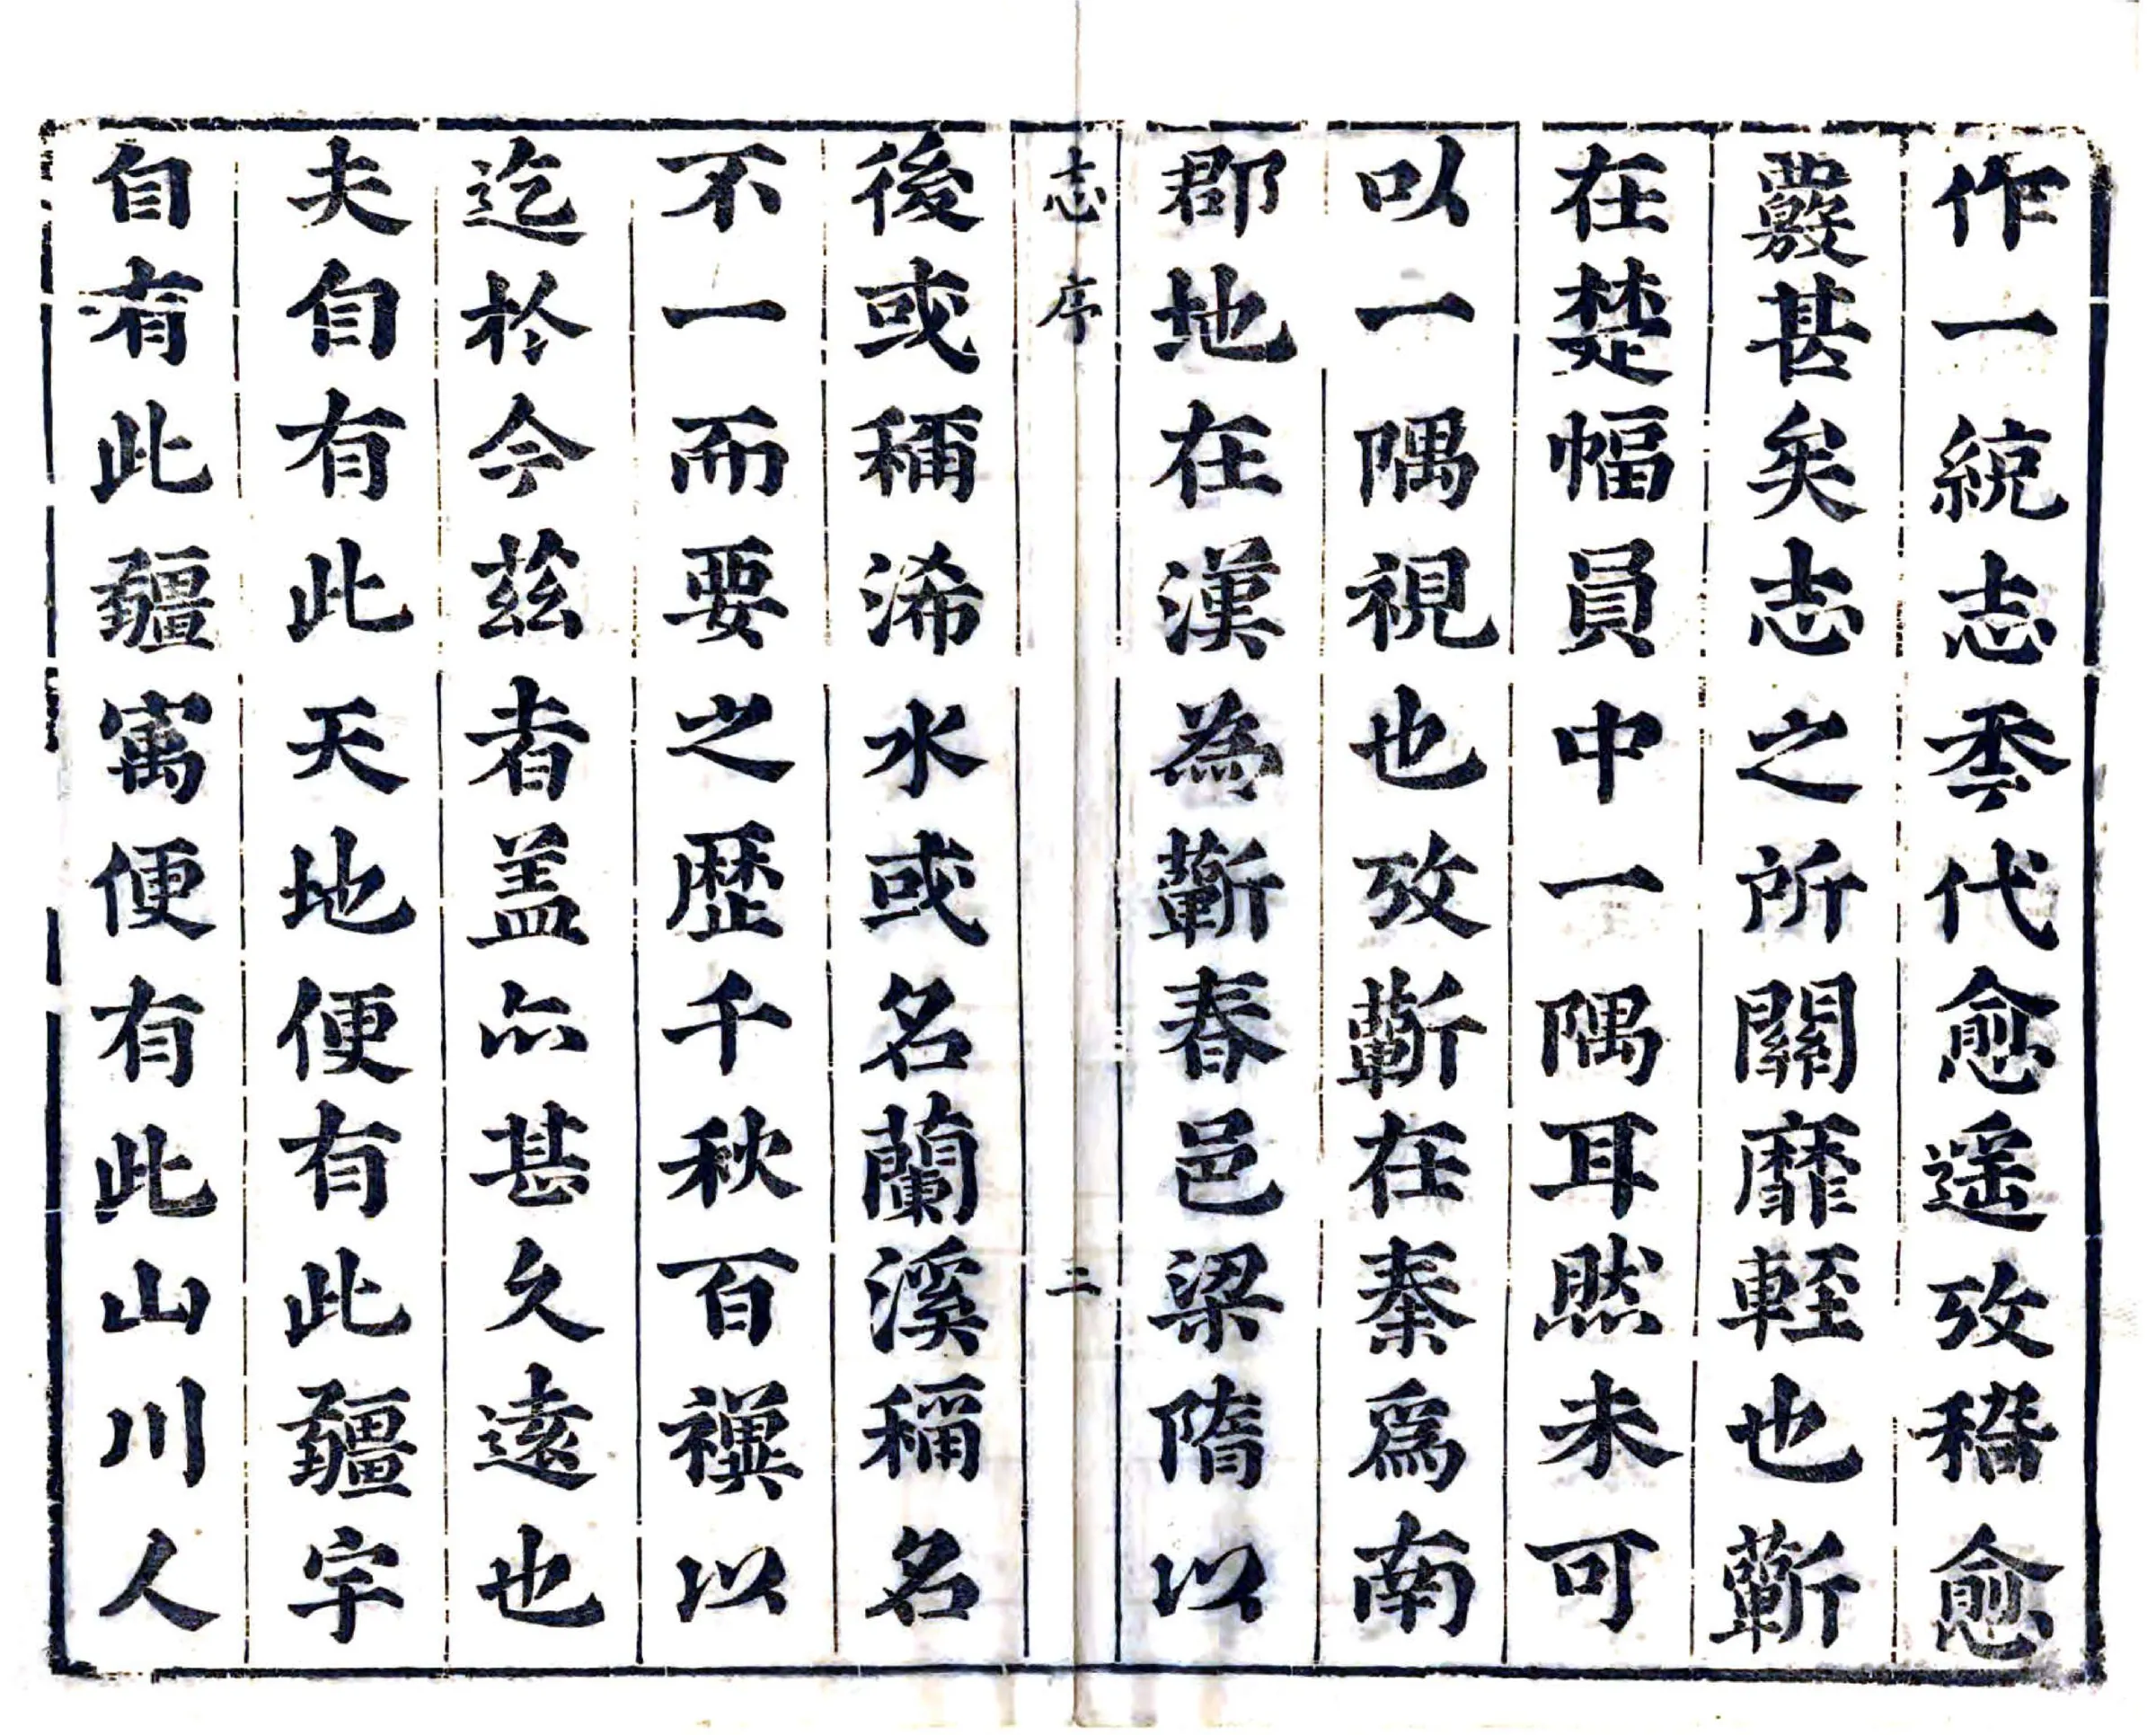 作一統志秊代愈遥攷稽愈
覈甚矣志之所關靡輊也蘄
在楚幅員中一隅耳然未可
以一隅視也攷蘄在秦爲南
郡地在漢為蘄春邑梁隋以
志序 二
後或稱浠水或名蘭溪稱名
不一而要之歴千秋百禩以
迄於今茲者盖亦甚久遠也
夫自有此天地便有此疆宇
自有此疆寓便有此山川人